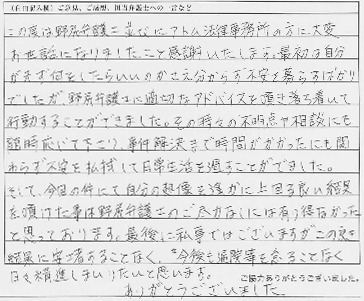 (自由記入欄) ご意見、ご感想、担当弁護士への一言など
この度は野尻弁護士並びにアトム法律事務所の方に大変
お世話になりましたこと感謝いたします。最初は自分
がまず何をしたらいいのかさえ分からず不安を募らすばかり
でしたが野尻弁護士に適切なアドバイスを頂き落ち着いて
行動することができました。その時々の不明点や相談にも
随時応じて下さり、事件解決まで時間がかかったにも関
わらず不安を払拭して日常生活を過すことができました。
そして、今回の件にて自分の想像を遥かに上回る良い結果
を頂けた事は野尻弁護士のご尽力なしには有り得なかった
と思っております。最後に私事ではございますがこの度の
結果に安堵することなく、今後も通院等を怠ることなく
日々精進しまいりたいと思います。
ご協力ありがとうございました。
ありがとうございました